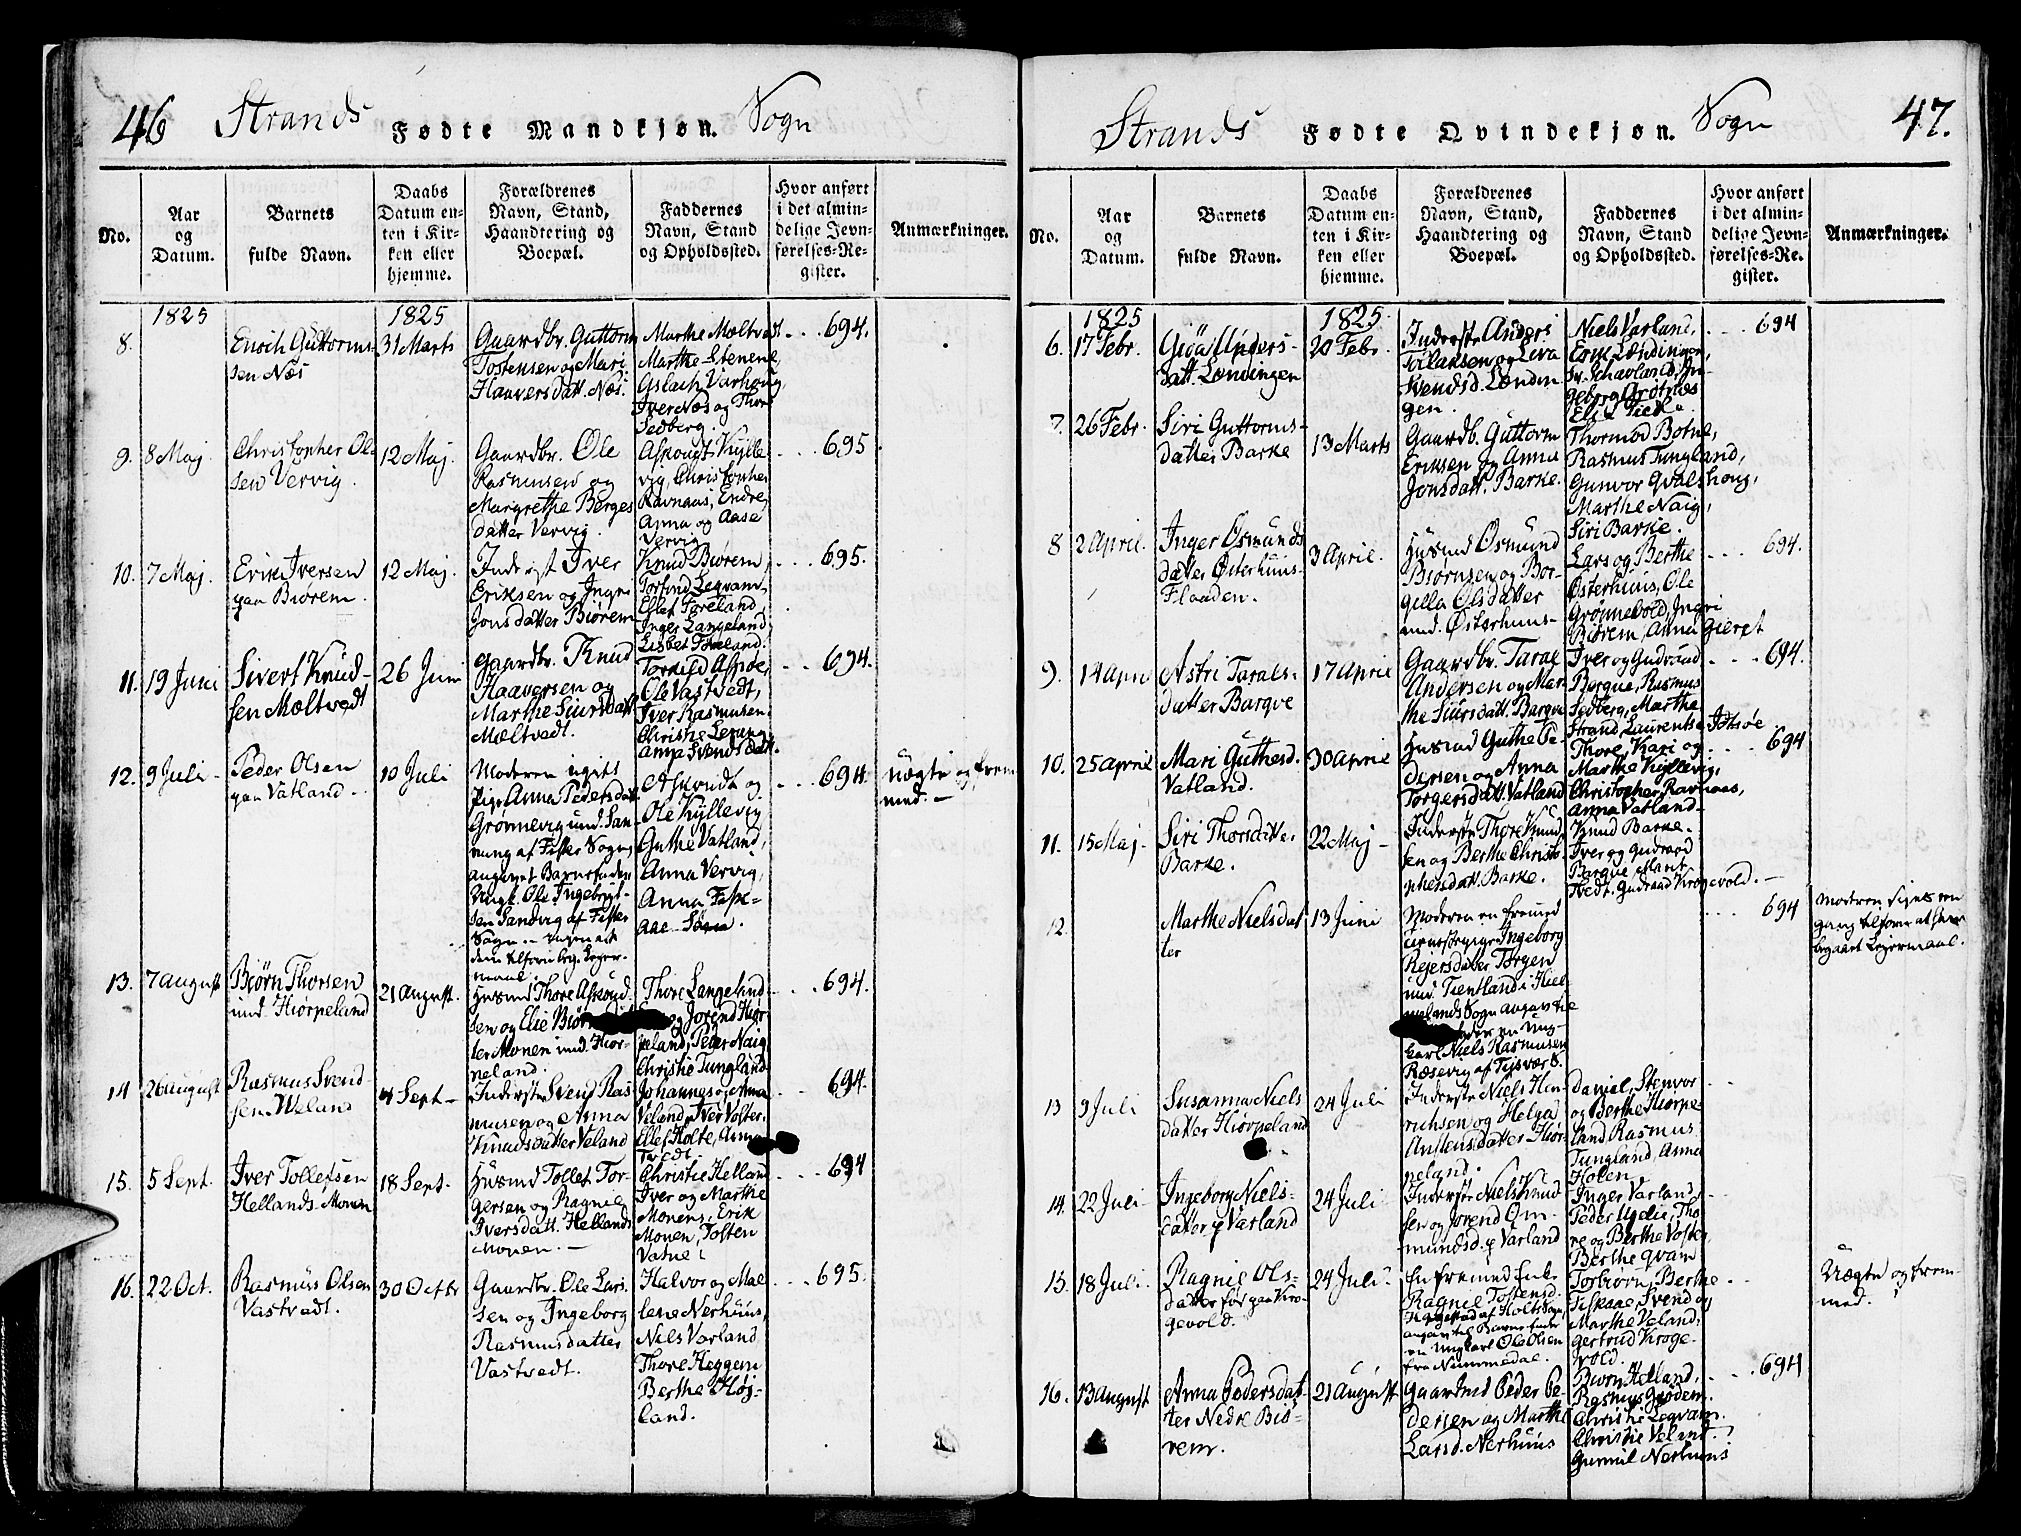 46 Strands Fødte Mandkjøn. Sogn
No.
Aar
og
Datum.
Barnets
fulde Navn.
Daabs
Datum en-
ten i Kir-
ken eller
hjemme.
Forældrenes
Navn, Stand,
Haandtering og
Boepæl.
Faddernes
Navn, Stand
og Opholdssted.
Hvor anført
i det almin-
delige Jevn-
førelses-Re-
gister.
Anmærkninger.
1825
1825
8.
Enoch Guttorms-
sen Næs
31 Marts
Gaardbr. Guttorm
Tostensen og Mari
Haaversdatt. Næs.
Marthe Mæltvedt
Marthe Stenene
Aslach Varhoug,
Iver Næs og Thore
Sedberg.
694.
9. 8 Maj.
Christopher Ol-
sen Vervig.
12 Maj.
Gaardbr. Ole
Rasmusen og
Margrethe Berges
datter Vervig.
Askougt Kylle-
vig, Christopher
Ravnaas, Endre,
Anna og Aase
Vervig
695
10. 7 Maj.
Erik Iversen
paa Biørem.
12 Maj.
Inderst Iver
Eriksen og Ingri
Jonsdatter Biørem
Knud Biørem,
Torfind Legvam,
Ellef Foreland
Inger Langeland
Lisbet Foreland.
695.
11. 19 Juni
Sivert Knud-
sen Mæltvedt
26 Juni
Gaardbr. Knud
Haaversen og
Marthe Siursdatt.
Mæltvedt.
Torkild Apsøe,
Ole Vastvedt,
Iver Rasmusen
Christie Lerang
Anna Svendsdatt.
694.
12. 9 Juli
Peder Olsen
paa Vatland.
10 Juli
Moderen ugift
Pige Anna Pedersdatt.
Grønnevig und. San-
nung af Fister Sogn,
angivet Barnefader
Ungk. Ole Ingebrigt-
sen Sandvig af Fister
Sogn.
Askoudt og
Ole Kyllevig
Guthe Vatland,
Anna Vervig,
Anna Fisk-
aae Sogn.
694.
Uægte og frem-
med.
13. 7 August
Biørn Thorsen
und. Hiørpeland
21 August.
Husmd Thore Askoud-
sen og Elie Biørnsdat-
ter Monen und. Hiør-
peland.
Thore Langeland
og Jorend Hiør-
peland, Peder Naig
Christie Tungland
694.
14 26 August
Rasmus Svend-
sen Weland
4 Sept.
Inderste Svend Ras-
musen og Anna
Knudsdatter Veland
Johannes og Anna
Veland, Iver Volster
Ellef Holte, Anna
Tvedt.
694.
15. 5 Sept.
Iver Tollefsen
Hellands Monen
18 Sept.
Husmd Tollef Tor-
gersen og Ragnie
Iversdatt. Hellands
Monen.
Christie Helland
Iver og Marthe
Monens, Erik
Monen, Tosten
Vatne
694
16. 22 Oct.
Rasmus Olsen
Vastvedt.
30 Octbr
Gaardbr. Ole Lars-
sen og Ingeborg
Rasmusdatter
Vastvedt.
Halvor og Mal-
lene Nerhuus,
Niels Varland
Thore Heggem
Berthe Høj-
land.
695.
Strands Fødte Qvindekjøn. Sogn 47.
No.
Aar
og
Datum.
Barnets
fulde Navn.
Daabs
Datum en-
ten i Kir-
ken eller
hjemme.
Forældrenes
Navn, Stand,
Haandtering og
Boepæl.
Faddernes
Navn, Stand
og Opholdssted.
Hvor anført
i det almin-
delige Jevn-
førelses-Re-
gister.
Anmærkninger.
1825
1825.
6. 17 Febr.
Giøa Anders-
datt. Lændingen
20 Febr.
Inderste Anders
Tollaksen og Siva
Svendsd. Lændin-
gen.
Niels Varland,
Erik Lændingen,
Sr. Schavland, In-
geborg Grøtnes
Eli Tiedt
694
7. 26 Febr.
Siri Guttorms-
datter Barke
13 Marts
Gaardb. Guttorm
Eriksen og Anna
Jonsdatt. Barke.
Thormod Botne,
Rasmus Tungland,
Gunvor Qvalshoug,
Marthe Naig,
Siri Barke.
8 2 April.
Inger Osmunds
datter Østerhuus-
Flaaden.
3 April.
Husmd Osmund
Biørnsen og Bor-
gilla Olsdatter
und. Østerhuus-
Lars og Berthe
Østerhuus, Ole
Grønnevold, Ingri
Biørem, Anna Gieret
694.
9. 14 April
Astri Tarals-
datter Barqve
17 April
Gaardbr. Taral
Andersen og Mar-
the Siursdatt. Barqve
Iver og Gudraad
Barqve, Rasmus
Sedberg, Marthe
Strand, Laurentse Idsøe
694.
10. 25 April
Mari Guthesd.
Vatland.
30 April
Husmd Guthe Pe-
dersen og Anna
Torgersdatt. Vatland
Thore, Kari og
Marthe Kyllevig,
Christopher Ravnaas,
Anna Vatland
694
11. 15 Maj
Siri Thorsdatter
Barke.
22 Maj
Inderste Thore Knud-
sen og Berthe Christo-
phersdatt. Barke.
Knud Barke.
Iver og Gudraad
Barqve, Marit
Tvedt, Gudraad Krogevold.
12.
Marthe Nielsdat-
ter
13 Juni
Moderen en fremd
Pige Ingeborg
Rejersdatter Torgen
und. Tientland i Hiel-
melands Sogn angav til
Barnefader en Ung-
karl Niels Rasmusen
Ræsevig af Tysvær S.
694
Moderen Siges en
gang tilforn at have
begaaet Lejermaal.
13 9 Juli
Susanna Niels
datter Hiørpeland
24 Juli
Inderste Niels Hen-
richsen og Helga
Anstensdatter Hiør-
peland.
Daniel, Stenvor
og Berthe Hiørpe-
land Rasmus
Tungland, Anna
Holen
14. 22 Juli
Ingeborg Niels-
datter p Varland
24 Juli
Inderste Niels Knud-
sen og Jorend Om-
mundsd. p Varland
Inger Varland
Peder Ydie, Tho-
re og Berthe Voster,
Berthe Qvam
15. 18 Juli.
Ragnie Ols-
datter fød paa Kro-
gevold.
24 Juli
En fremmed Enke
Ragnie Tostensd.
Haggestad af Holts Sogn,
angav til Barnefader
en Ungkarl Ole Olsen
fra Nummedal.
Torbiørn, Berthe
Fiskaae, Svend og
Marthe Veland,
Gertrud Kroge-
vold.
Uægte og frem-
med.
16. 13 August
Anna Pedersdat-
ter Nedre Biø-
rem.
21 August
Gaardmd Peder Pe-
dersen og Marthe
Larsd. Nerhuus
Biørn Helland,
Rasmus Giødem
Christie Legvam.
Christie Veland
Gunnil Nerhuus
694